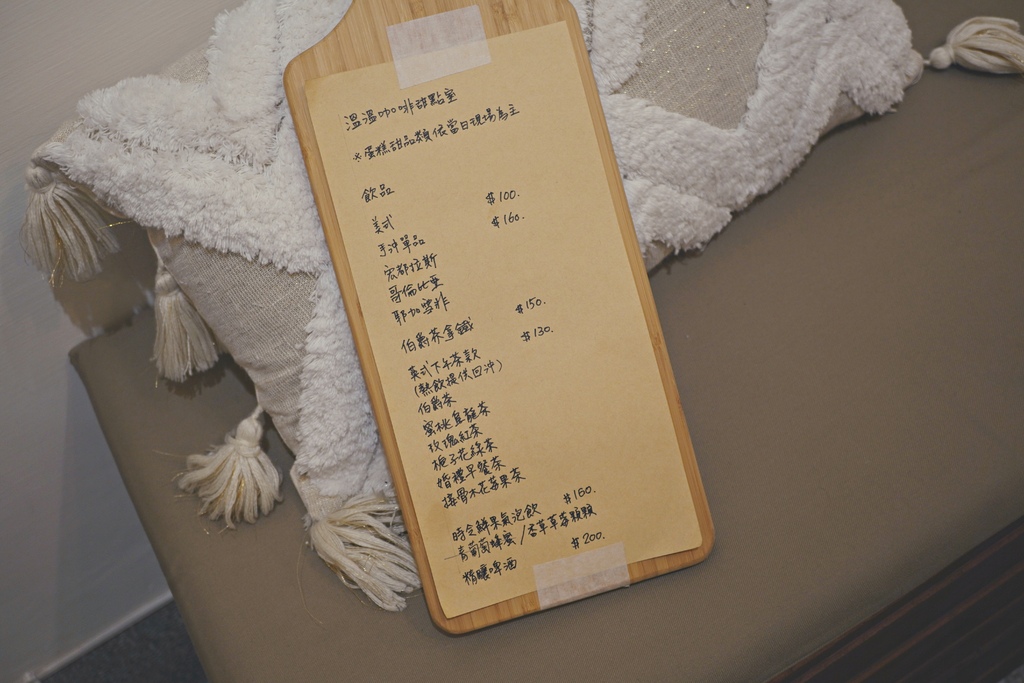 溫溫咖啡甜點室
※蛋糕甜品類依當日現場為主
飲品
美式 $100.
手沖單品 $160.
宏都拉斯
哥倫比亞
耶加雪菲
伯爵茶拿鐵 $150.
英式下午茶款 $130.
(熱飲提供回沖)
伯爵茶
蜜桃烏龍茶
玫瑰紅茶
梔子花綠茶
婚禮早餐茶
接骨木花莓果茶
時令鮮果氣泡飲 $150.
青葡萄蜂蜜/香草草莓顆顆
精釀啤酒 $200.